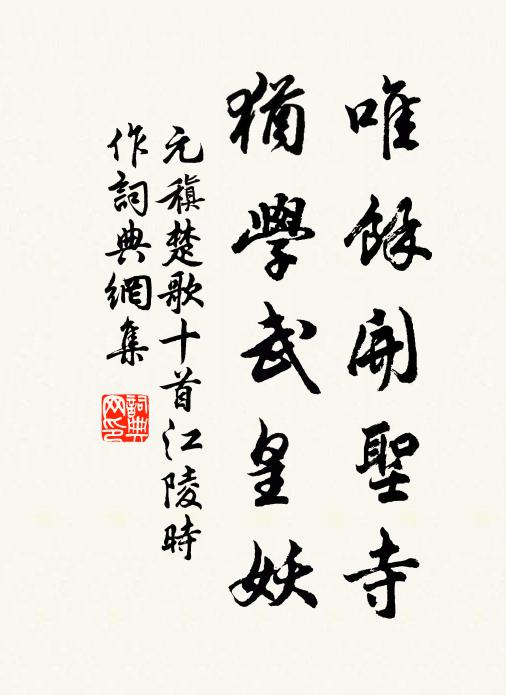 唯餘開聖寺
猶學武皇妖
元稹楚歌十首江陵時
作詞典網集
詞典網印